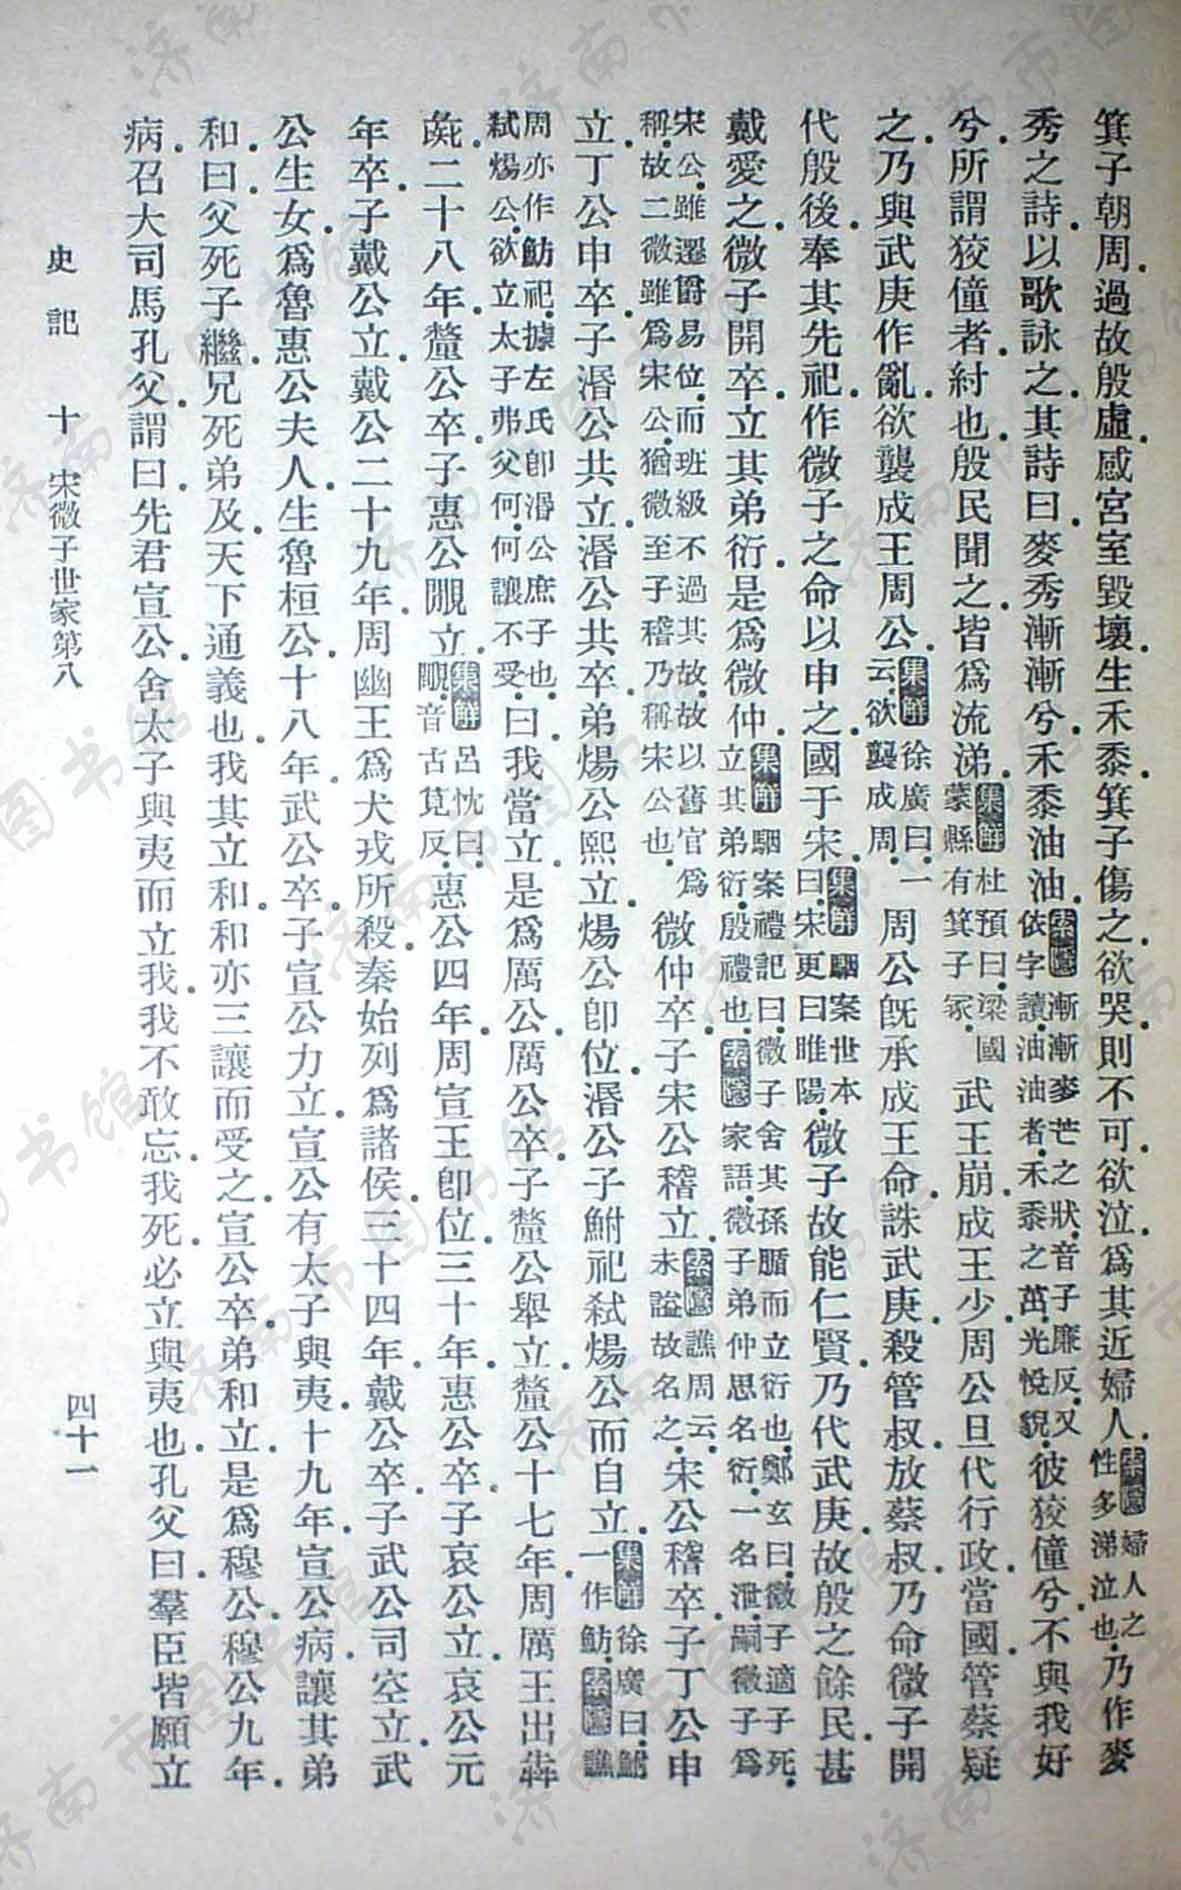 箕子朝周.過故殷虛.感宮室毀壞.生禾黍.箕子傷之.欲哭.則不可.欲泣.爲其近婦人.索隱婦人之性多涕泣也.乃作麥
秀之詩.以歌詠之.其詩曰.麥秀漸漸兮.禾黍油油.索隱漸漸.麥芒之狀.音子廉反.又依字讀.油油者.禾黍之苗.光悅貌.彼狡僮兮.不與我好
兮.所謂狡僮者.紂也.殷民聞之.皆爲流涕.集解杜預曰.梁國蒙縣有箕子冢.武王崩.成王少.周公旦代行政.當國.管蔡疑
之.乃與武庚作亂.欲襲成王周公.集解徐廣曰.一云.欲襲成周.周公旣承成王命.誅武庚.殺管叔.放蔡叔.乃命微子開
代殷後.奉其先祀.作微子之命以申之.國于宋.集解駰案世本曰.宋更曰睢陽.微子故能仁賢.乃代武庚.故殷之餘民.甚
戴愛之.微子開卒.立其弟衍.是爲微仲.集解駰案禮記曰.微子舍其孫腯而立衍也.鄭玄曰.微子適子死.立其弟衍.殷禮也.索隱家語.微子弟仲思名衍.一名泄.嗣微子爲
宋公.雖遷爵易位.而班級不過其故.故以舊官爲稱.故二微雖爲宋公.猶微至子稽.乃稱宋公也.微仲卒.子宋公稽立.索隱譙周云.未謚故名之.宋公稽卒.子丁公申
立.丁公申卒.子湣公共立.湣公共卒.弟煬公熙立.煬公卽位.湣公子鮒祀弑煬公而自立.集解徐廣曰.鮒一作魴.索隱譙
周亦作魴祀.據左氏卽湣公庶子也.弑煬公.欲立太子弗父何.何讓不受.曰.我當立.是爲厲公.厲公卒.子釐公舉立.釐公十七年.周厲王出犇
彘.二十八年.釐公卒.子惠公覵立.集解呂忱曰.覵音古莧反.惠公四年.周宣王卽位.三十年.惠公卒.子哀公立.哀公元
年卒.子戴公立.戴公二十九年.周幽王爲犬戎所殺.秦始列爲諸侯.三十四年.戴公卒.子武公司空立.武
公生女.爲魯惠公夫人.生魯桓公.十八年.武公卒.子宣公力立.宣公有太子與夷.十九年.宣公病.讓其弟
和.曰.父死子繼.兄死弟及.天下通義也.我其立和.和亦三讓而受之.宣公卒.弟和立.是爲穆公.穆公九年.
病.召大司馬孔父.謂曰.先君宣公.舍太子與夷而立我.我不敢忘.我死.必立與夷也.孔父曰.羣臣皆願立
史記 十 宋微子世家第八 四十一